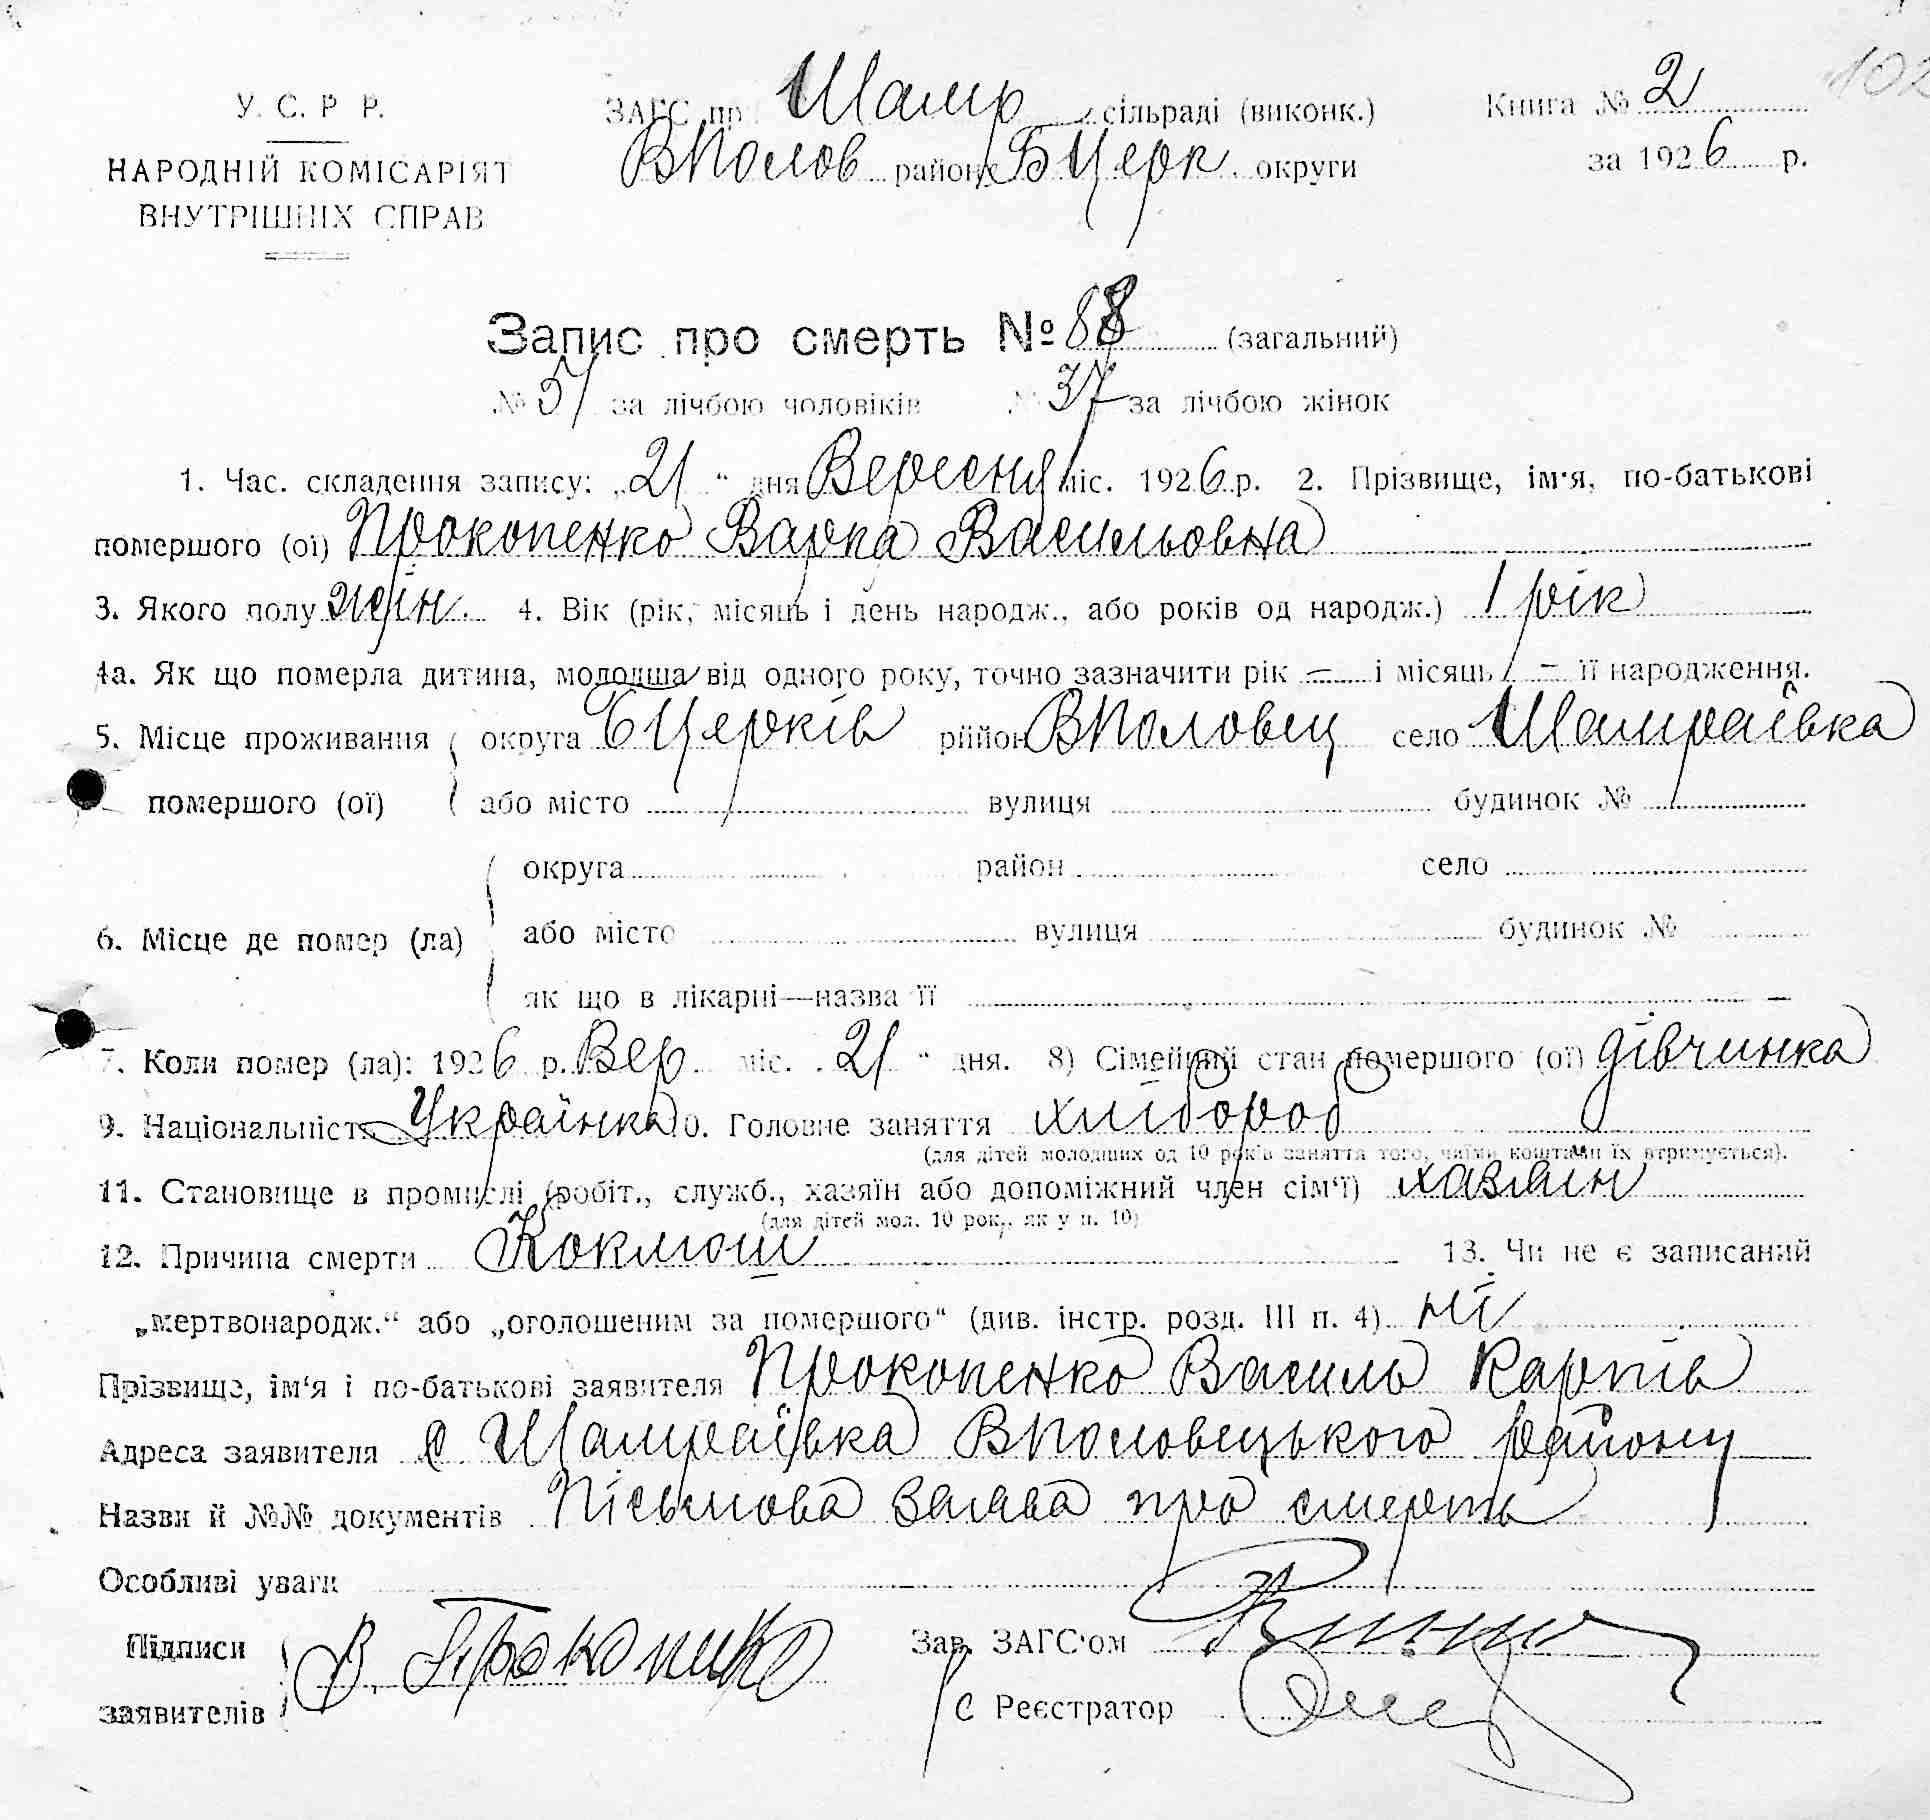 102
У. С. Р Р.
НАРОДНІЙ КОМІСАРІЯТ
ВНУТРІШНІХ СПРАВ
ЗАГС пр Шамр сільраді (виконк.)
ВПолов район БЦерк. округи
Книга № 2
за 1926 р.
Запис про смерть № 88 (загальний)
№ 51 за лічбою чоловіків № 37 за лічбою жінок
1. Час. складення запису: „21" дня Вересня міс. 1926 р. 2. Прізвище, ім'я, по-батькові
помершого (ої) Прокопенко Варка Васильовна
3. Якого полу жін. 4. Вік (рік, місяць і день народж., або років од народж.) 1 рік
4а. Як що померла дитина, молодша від одного року, точно зазначити рік — і місяць — її народження.
5. Місце проживання округа БЦерків район ВПоловец село Шамраївка
помершого (ої) або місто вулиця будинок №
округа район село
6. Місце де помер (ла) або місто вулиця будинок №
як що в лікарні—назва її —
7. Коли помер (ла): 1926 р. Вер міс. 21 " дня. 8) Сімейний стан помершого (ої) дівчинка
9. Національність Українка 10. Головне заняття хлібороб
(для дітей молодших од 10 років заняття того, чиїми коштами їх втримується).
11. Становище в промислі (робіт., служб., хазяїн або допоміжний член сім'ї) хазяїн
(для дітей мол. 10 рок., як у п. 10)
12. Причина смерти Коклюш 13. Чи не є записаний
„мертвонародж." або „оголошеним за помершого" (див. інстр. розд. III п. 4) ні
Прізвище, ім'я і по-батькові заявителя Прокопенко Василь Карпів
Адреса заявителя с Шамраївка ВПоловецького району
Назви й №№ документів Пісьмова заява про смерть
Особливі уваги
Підписи
заявителів
В. Прокопенко
Зав. ЗАГС'ом
с Реєстратор